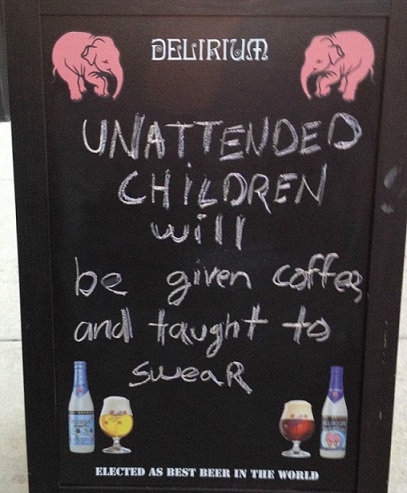 DELIRIUM
UNATTENDED
CHILDREN
will
be given coffee
and taught to
sweaR
ELECTED AS BEST BEER IN THE WORLD